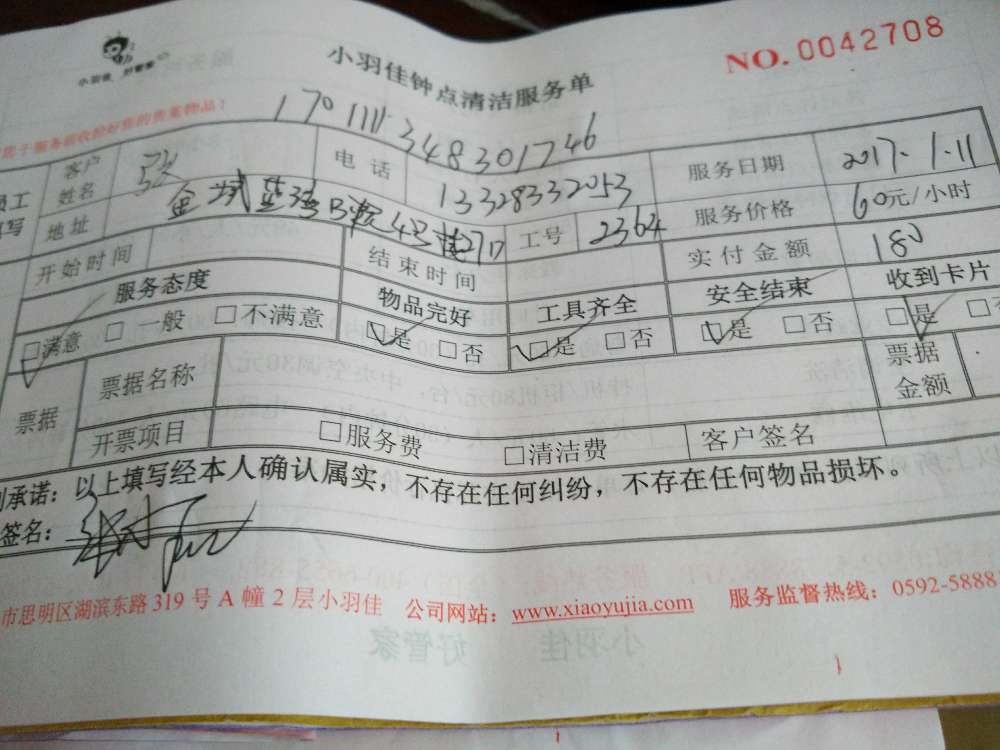 小羽佳 好管家
小羽佳钟点清洁服务单
NO.0042708
于服务前收拾好您的贵重物品!
170111348301746
员工
填写
客户
姓名
张
电话
13328332053
服务日期
2017.1.11
地址
金域蓝湾
工号
2364
服务价格
60元/小时
开始时间
结束时间
实付金额
180
服务态度
物品完好
工具齐全
安全结束
收到卡片
□满意 □一般 □不满意
□是 □否
□是 □否
□是 □否
□是
票据
票据名称
票据
金额
开票项目
□服务费 □清洁费
客户签名
承诺:以上填写经本人确认属实,不存在任何纠纷,不存在任何物品损坏。
签名:
市思明区湖滨东路319号A幢2层小羽佳 公司网站:www.xiaoyujia.com 服务监督热线:0592-5888